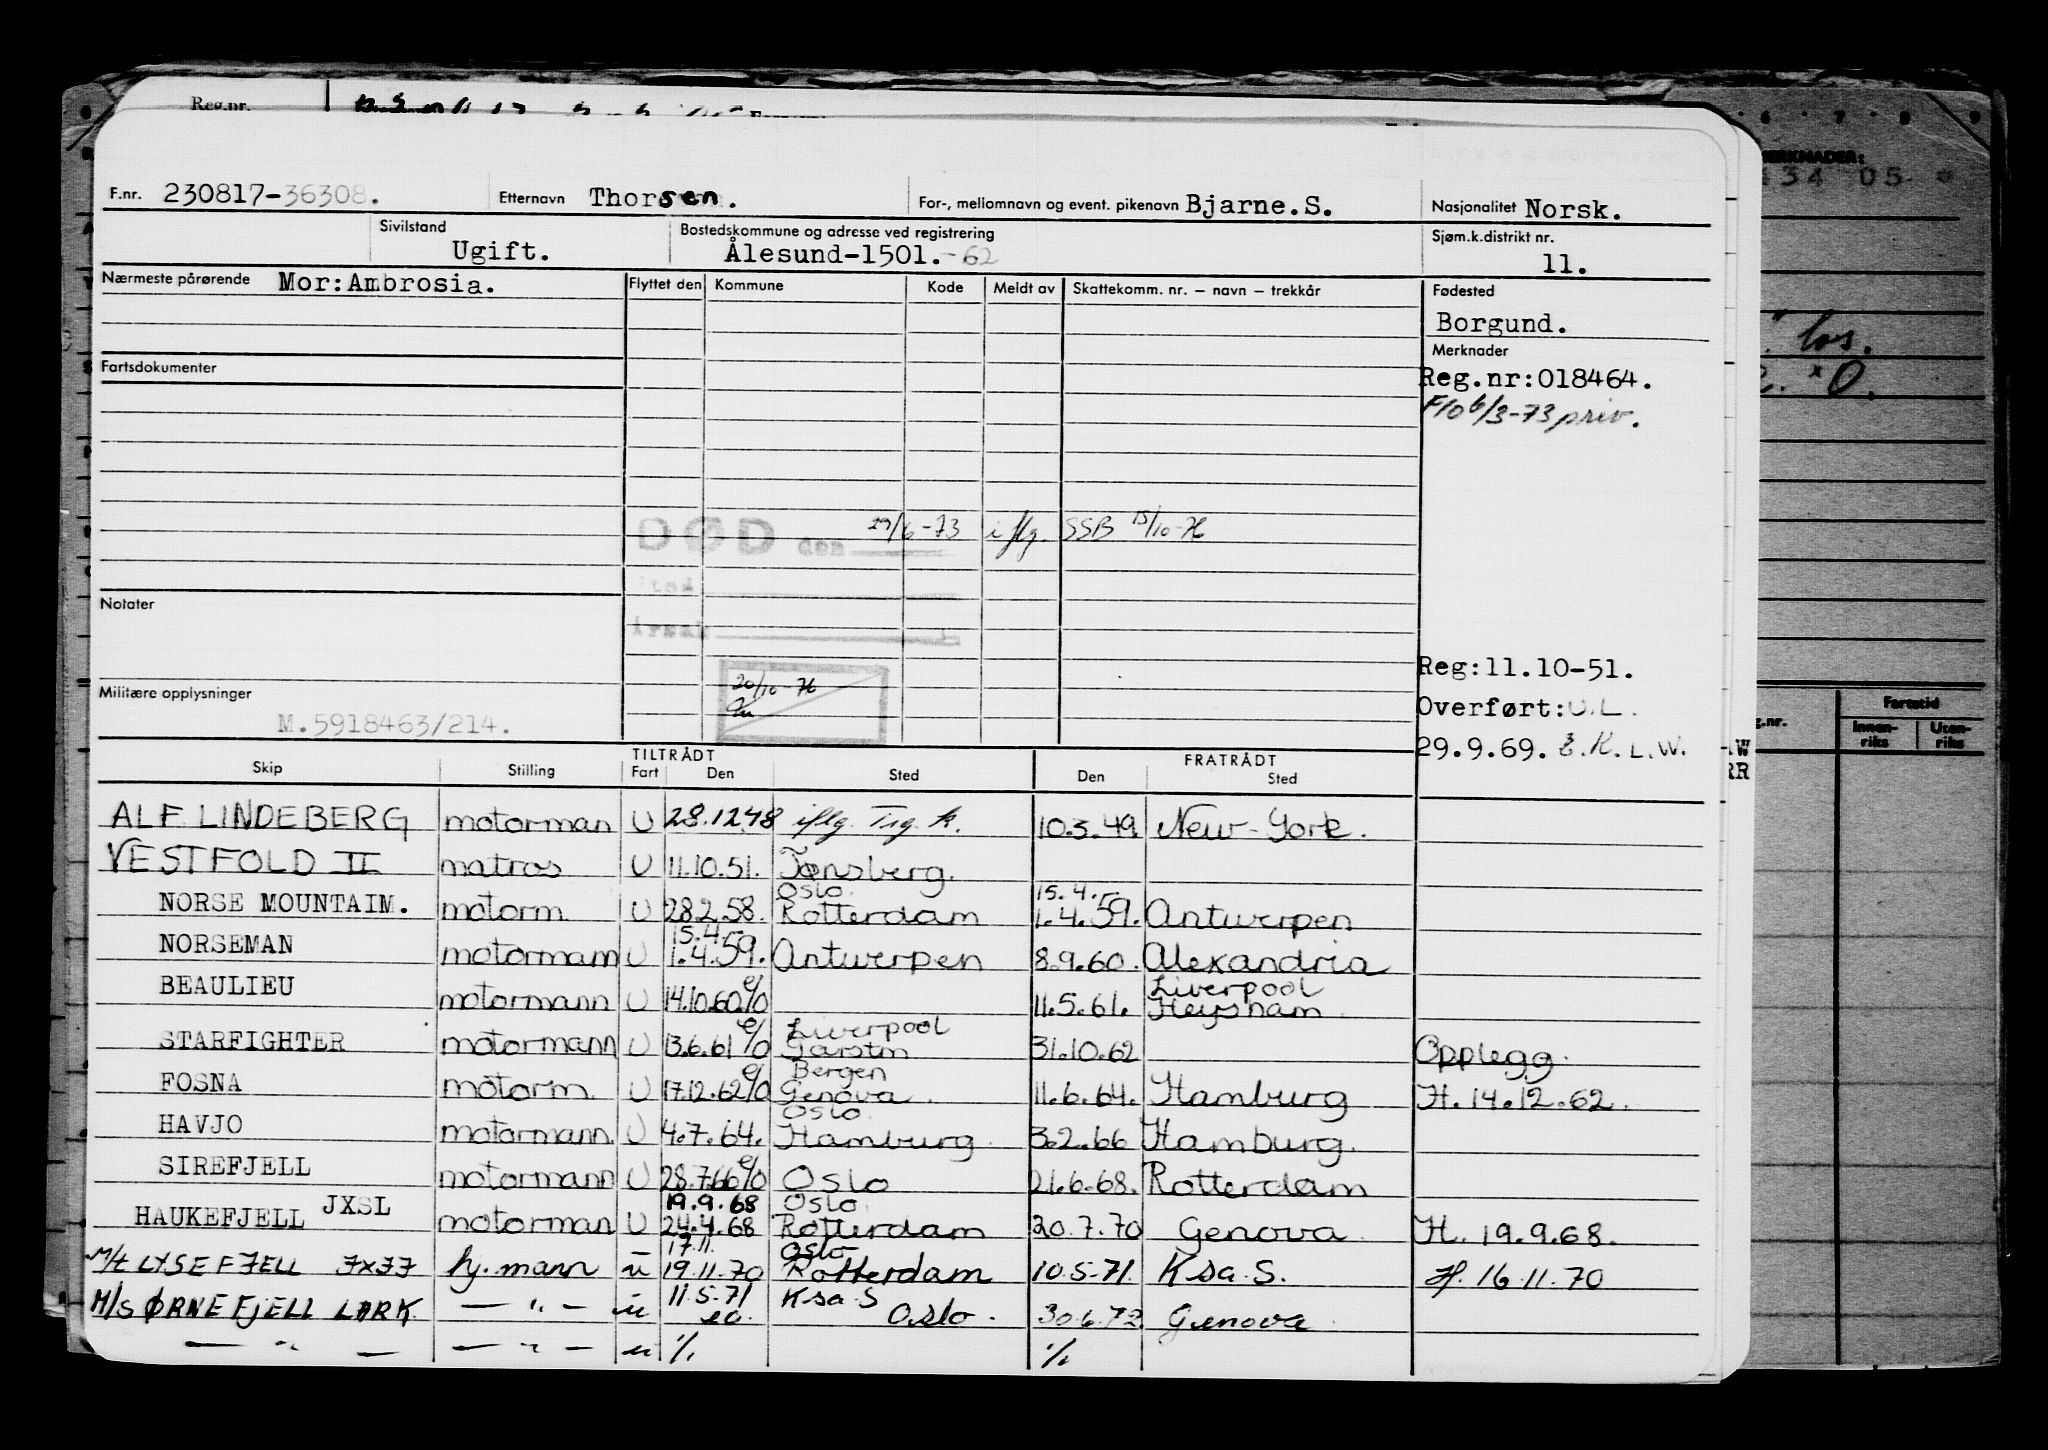 Reg.nr.
F.nr. 230817-36308. Etternavn Thorsen. For-, mellomnavn og event. pikenavn Bjarne.S. Nasjonalitet Norsk.
Sivilstand Ugift. Bostedskommune og adresse ved registrering Ålesund-1501.-62 Sjøm.k.distrikt nr. 11.
Nærmeste pårørende Mor:Ambrosia. Flyttet den Kommune Kode Meldt av Skattekomm. nr. – navn – trekkår Fødested
Borgund.
Merknader
Fartsdokumenter
Reg.nr:018464.
F/0 6/3-73 priv.
DØD den 29/6-73 iflg. SSB 15/10-76
Notater
Reg:11.10-51.
Militære opplysninger 20/10-76
M.5918463/214.
Overført:U.L.
29.9.69. E.K.L.W.
TILTRÅDT FRATRÅDT
Skip Stilling Fart Den Sted Den Sted
ALF LINDEBERG motorman U 28.12.48 iflg. Trg. k. 10.3.49. New-York.
VESTFOLD II matros U 11.10.51. Tønsberg.
Oslo. 15.4.
NORSE MOUNTAIM. motorm. U 28.2.58. Rotterdam 1.4.59. Antwerpen
15.4.
NORSEMAN motormann U 1.4.59. Antwerpen 8.9.60. Alexandria
Liverpool
BEAULIEU motormann U 14.10.60. e/o 11.5.61. Heysham
Liverpool
STARFIGHTER motormann U 13.6.61 e/o Garston 31.10.62 Opplegg.
Bergen
FOSNA motorm. U 17.12.62 e/o Genova. 11.6.64. Hamburg H. 14.12.62.
Oslo.
HAVJO motormann. U 4.7.64. Hamburg. 3.2.66 Hamburg.
SIREFJELL motormann U 28.7.66 e/o Oslo 21.6.68. Rotterdam
19.9.68 Oslo.
HAUKEFJELL JXSL motorman U 24.4.68 Rotterdam 20.7.70 Genova. H. 19.9.68.
17.11. Oslo
M/t LYSEFJELL JXJJ hj.mann u 19.11.70 Rotterdam 10.5-71. Ksa.S. H. 16.11.70
11.5-71 Ksa S
M/S ØRNEFJELL LARK. — " — u eo. Oslo. 30.6.72. Genova.
— " — — " — u 1/1 1/1
MERKNADER:
34 05
los.
Fartstid
Innen-riks Uten-riks